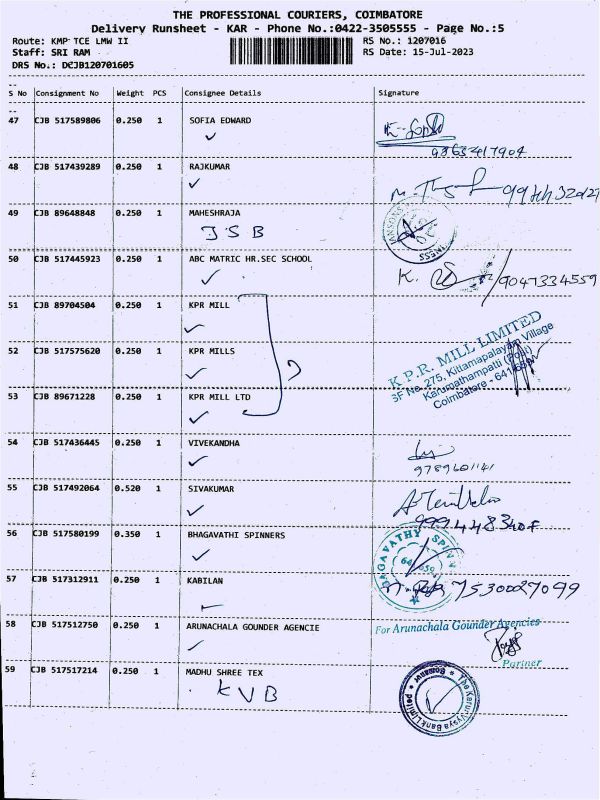 THE PROFESSIONAL COURIERS, COIMBATORE
Delivery Runsheet - KAR - Phone No.:0422-3505555 - Page No.:5
Route: KMP TCE LMW II RS No.: 1207016
Staff: SRI RAM RS Date: 15-Jul-2023
DRS No.: DCJB120701605
S No Consignment No Weight PCS Consignee Details Signature
47 CJB 517589806 0.250 1 SOFIA EDWARD
9863417904
48 CJB 517439289 0.250 1 RAJKUMAR
49 CJB 89648848 0.250 1 MAHESHRAJA
JSB
50 CJB 517445923 0.250 1 ABC MATRIC HR.SEC SCHOOL
K. 9047334559
51 CJB 89704504 0.250 1 KPR MILL
K.P.R. MILL LIMITED
SF No. 275, Kittampalayam Village
Karumathampatti (Post)
Coimbatore - 641
52 CJB 517575620 0.250 1 KPR MILLS
53 CJB 89671228 0.250 1 KPR MILL LTD
54 CJB 517436445 0.250 1 VIVEKANDHA
9789601141
55 CJB 517492064 0.520 1 SIVAKUMAR
56 CJB 517580199 0.350 1 BHAGAVATHI SPINNERS
57 CJB 517312911 0.250 1 KABILAN
7530027099
58 CJB 517512750 0.250 1 ARUNACHALA GOUNDER AGENCIE
For Arunachala Gounder Agencies
Partner
59 CJB 517517214 0.250 1 MADHU SHREE TEX
KVB
The Karur Vysya Bank Limited